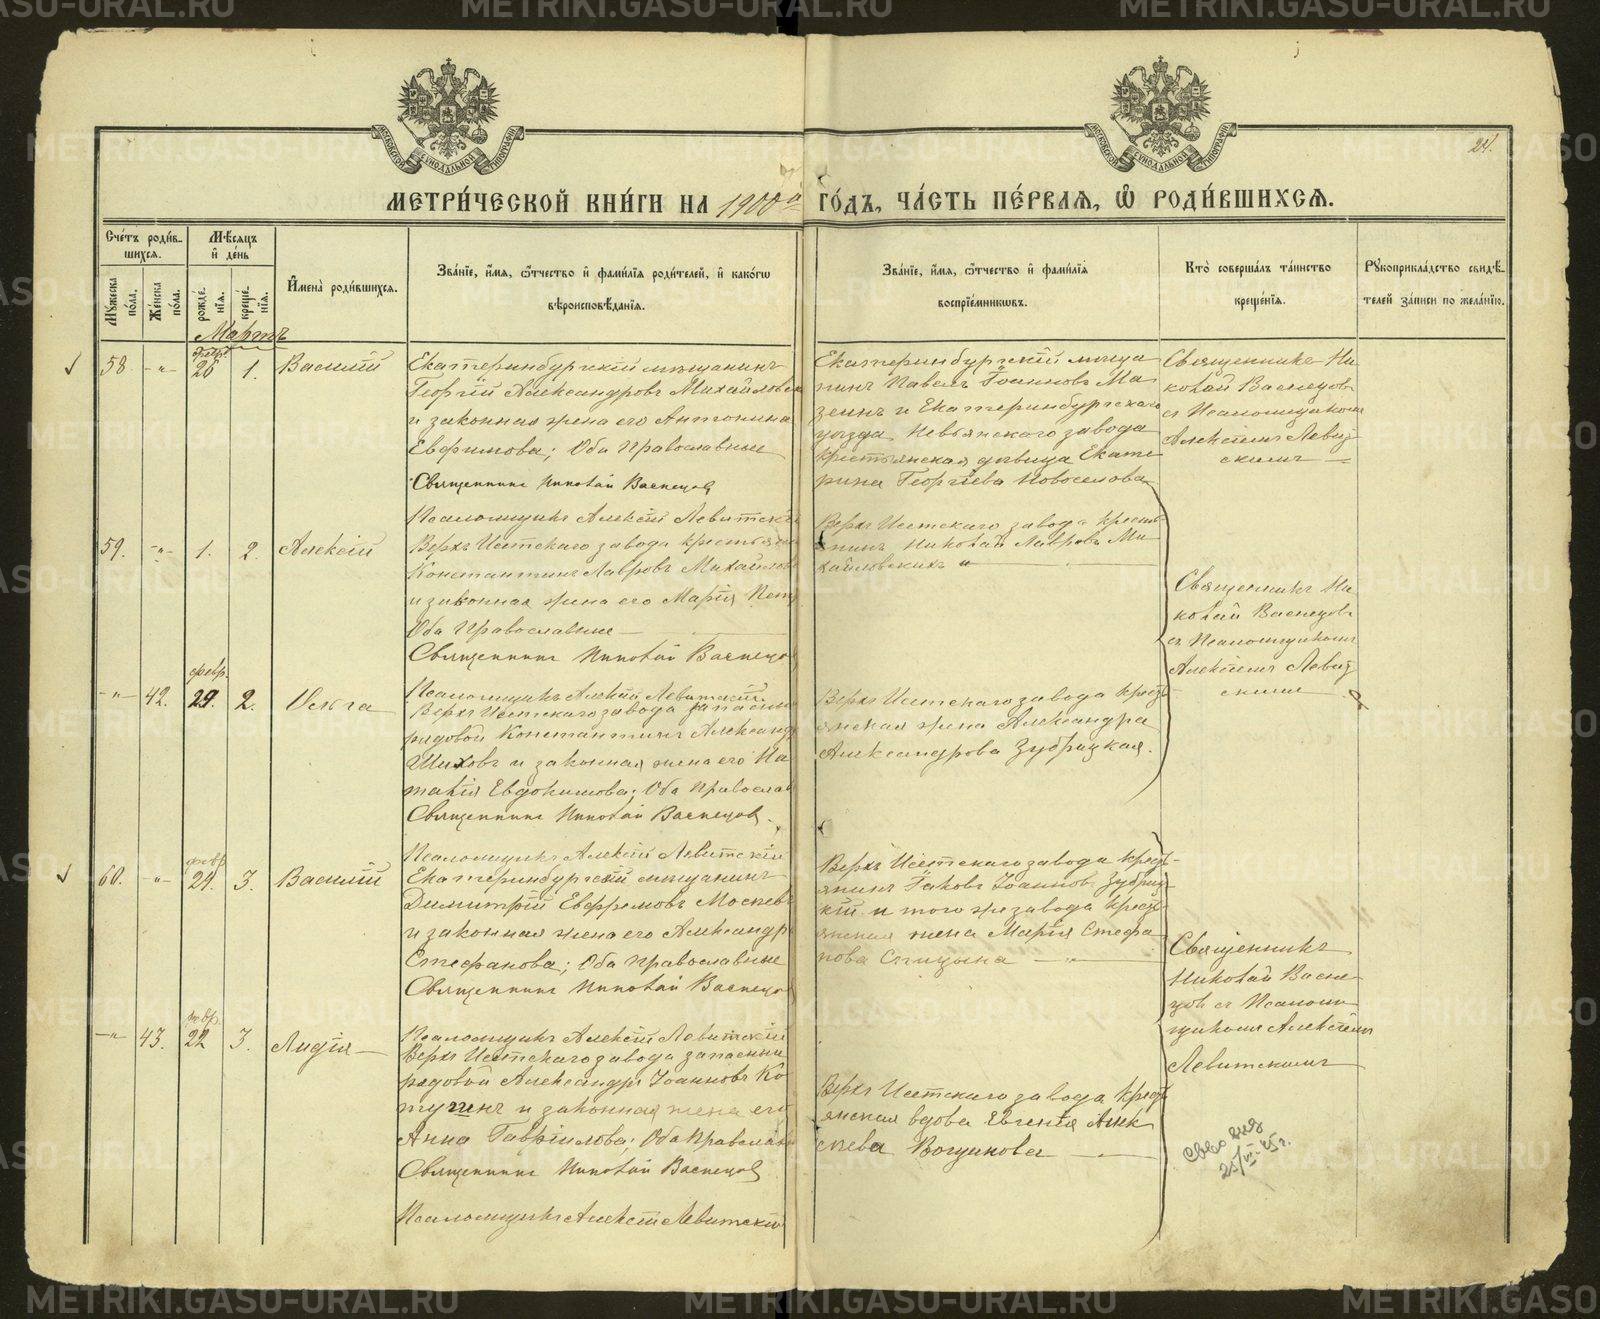 24.
МОСКОВСКОЙ СѴНОДАЛЬНОЙ ТИПОГРАФІИ
МОСКОВСКОЙ СѴНОДАЛЬНОЙ ТИПОГРАФІИ
МЕТРИ́ЧЕСКОЙ КНИ́ГИ НА 1900й ГО́ДЪ, ЧА́СТЬ ПЕ́РВАЯ, Ѡ҆ РОДИ́ВШИХСЯ.
Сче́тъ роди́в-
шихся.
Мѣ́сяцъ
и҆ де́нь
Мꙋ́жеска по́ла.
Же́нска по́ла.
рожде́нїя.
креще́нїя.
И҆мена̀ роди́вшихся.
Зва́нїе, и҆́мя, ѻ҆́тчество и҆ фами́лїя роди́телей, и҆ како́гѡ
вѣроисповѣ́данїя.
Зва́нїе, и҆́мя, ѻ҆́тчество и҆ фами́лїя
воспрїе́мникѡвъ.
Кто̀ соверша́лъ та́инство
креще́нїя.
Рꙋкоприкла́дство свидѣ́-
телей за́писи по жела́нїю.
Мартъ
58. -„- февр. 26 1. Василій
Екатеринбургскій мѣщанинъ
Георгій Александровъ Михайловск
и законная жена его Антонина
Евфимова; Оба Православные
Священникъ Николай Васнецовъ
Псаломщикъ Алексій Левитскій
Екатеринбургскій мѣща
нинъ Павелъ Іоанновъ Ма
зеинъ и Екатеринбургскаго
уѣзда, Невьянскаго завода
крестьянская дѣвица Екате
рина Георгіева Новоселова
Священникъ Ни
колай Васнецовъ
съ Псаломщикомъ
Алексіемъ Левит
скимъ
59. -„- 1. 2. Алексій
Верхъ Исетскаго завода крестьянин
Константинъ Лавровъ Михайлов
и законная жена его Марія Пет
Оба Православные
Священникъ Николай Васнецов
Псаломщикъ Алексій Левитскій
Верхъ Исетскаго завода кресть
янинъ Николай Лавровъ Ми
хайловскихъ
Священникъ Ни
колай Васнецовъ
съ Псаломщикомъ
Алексіемъ Левит
скимъ
-„- 42. февр. 29. 2. Ольга
Верхъ Исетскаго завода запасный
рядовой Константинъ Александр
Шиховъ и законная жена его На
талія Евдокимова; Оба Православ
Священникъ Николай Васнецовъ
Псаломщикъ Алексій Левитскій
Верхъ Исетскаго завода кресть
янская жена Александра
Александрова Зубрицкая.
60. -„- февр. 29. 3. Василій
Екатеринбургскій мѣщанинъ
Димитрій Евфремовъ Москвев
и законная жена его Александр
Стефанова; Оба Православные
Священникъ Николай Васнецов
Псаломщикъ Алексій Левитскій
Верхъ Исетскаго завода кресть-
янинъ Іаковъ Іоанновъ Зубриц
кій и того же завода кресть
янская жена Марія Стефа
нова Спицына
Священникъ
Николай Васне
цовъ съ Псалом
щикомъ Алексіемъ
Левитскимъ
-„- 43. февр. 22 3. Лидія
Верхъ Исетскаго завода запасный
рядовой Александръ Іоанновъ Ко
тугинъ и законная жена его
Анна Гавріилова; Оба Православн
Священникъ Николай Васнецовъ
Псаломщикъ Алексій Левитскій
Верхъ Исетскаго завода кресть
янская вдова Евгенія Алек
сѣева
METRIKI.GASO-URAL.RU